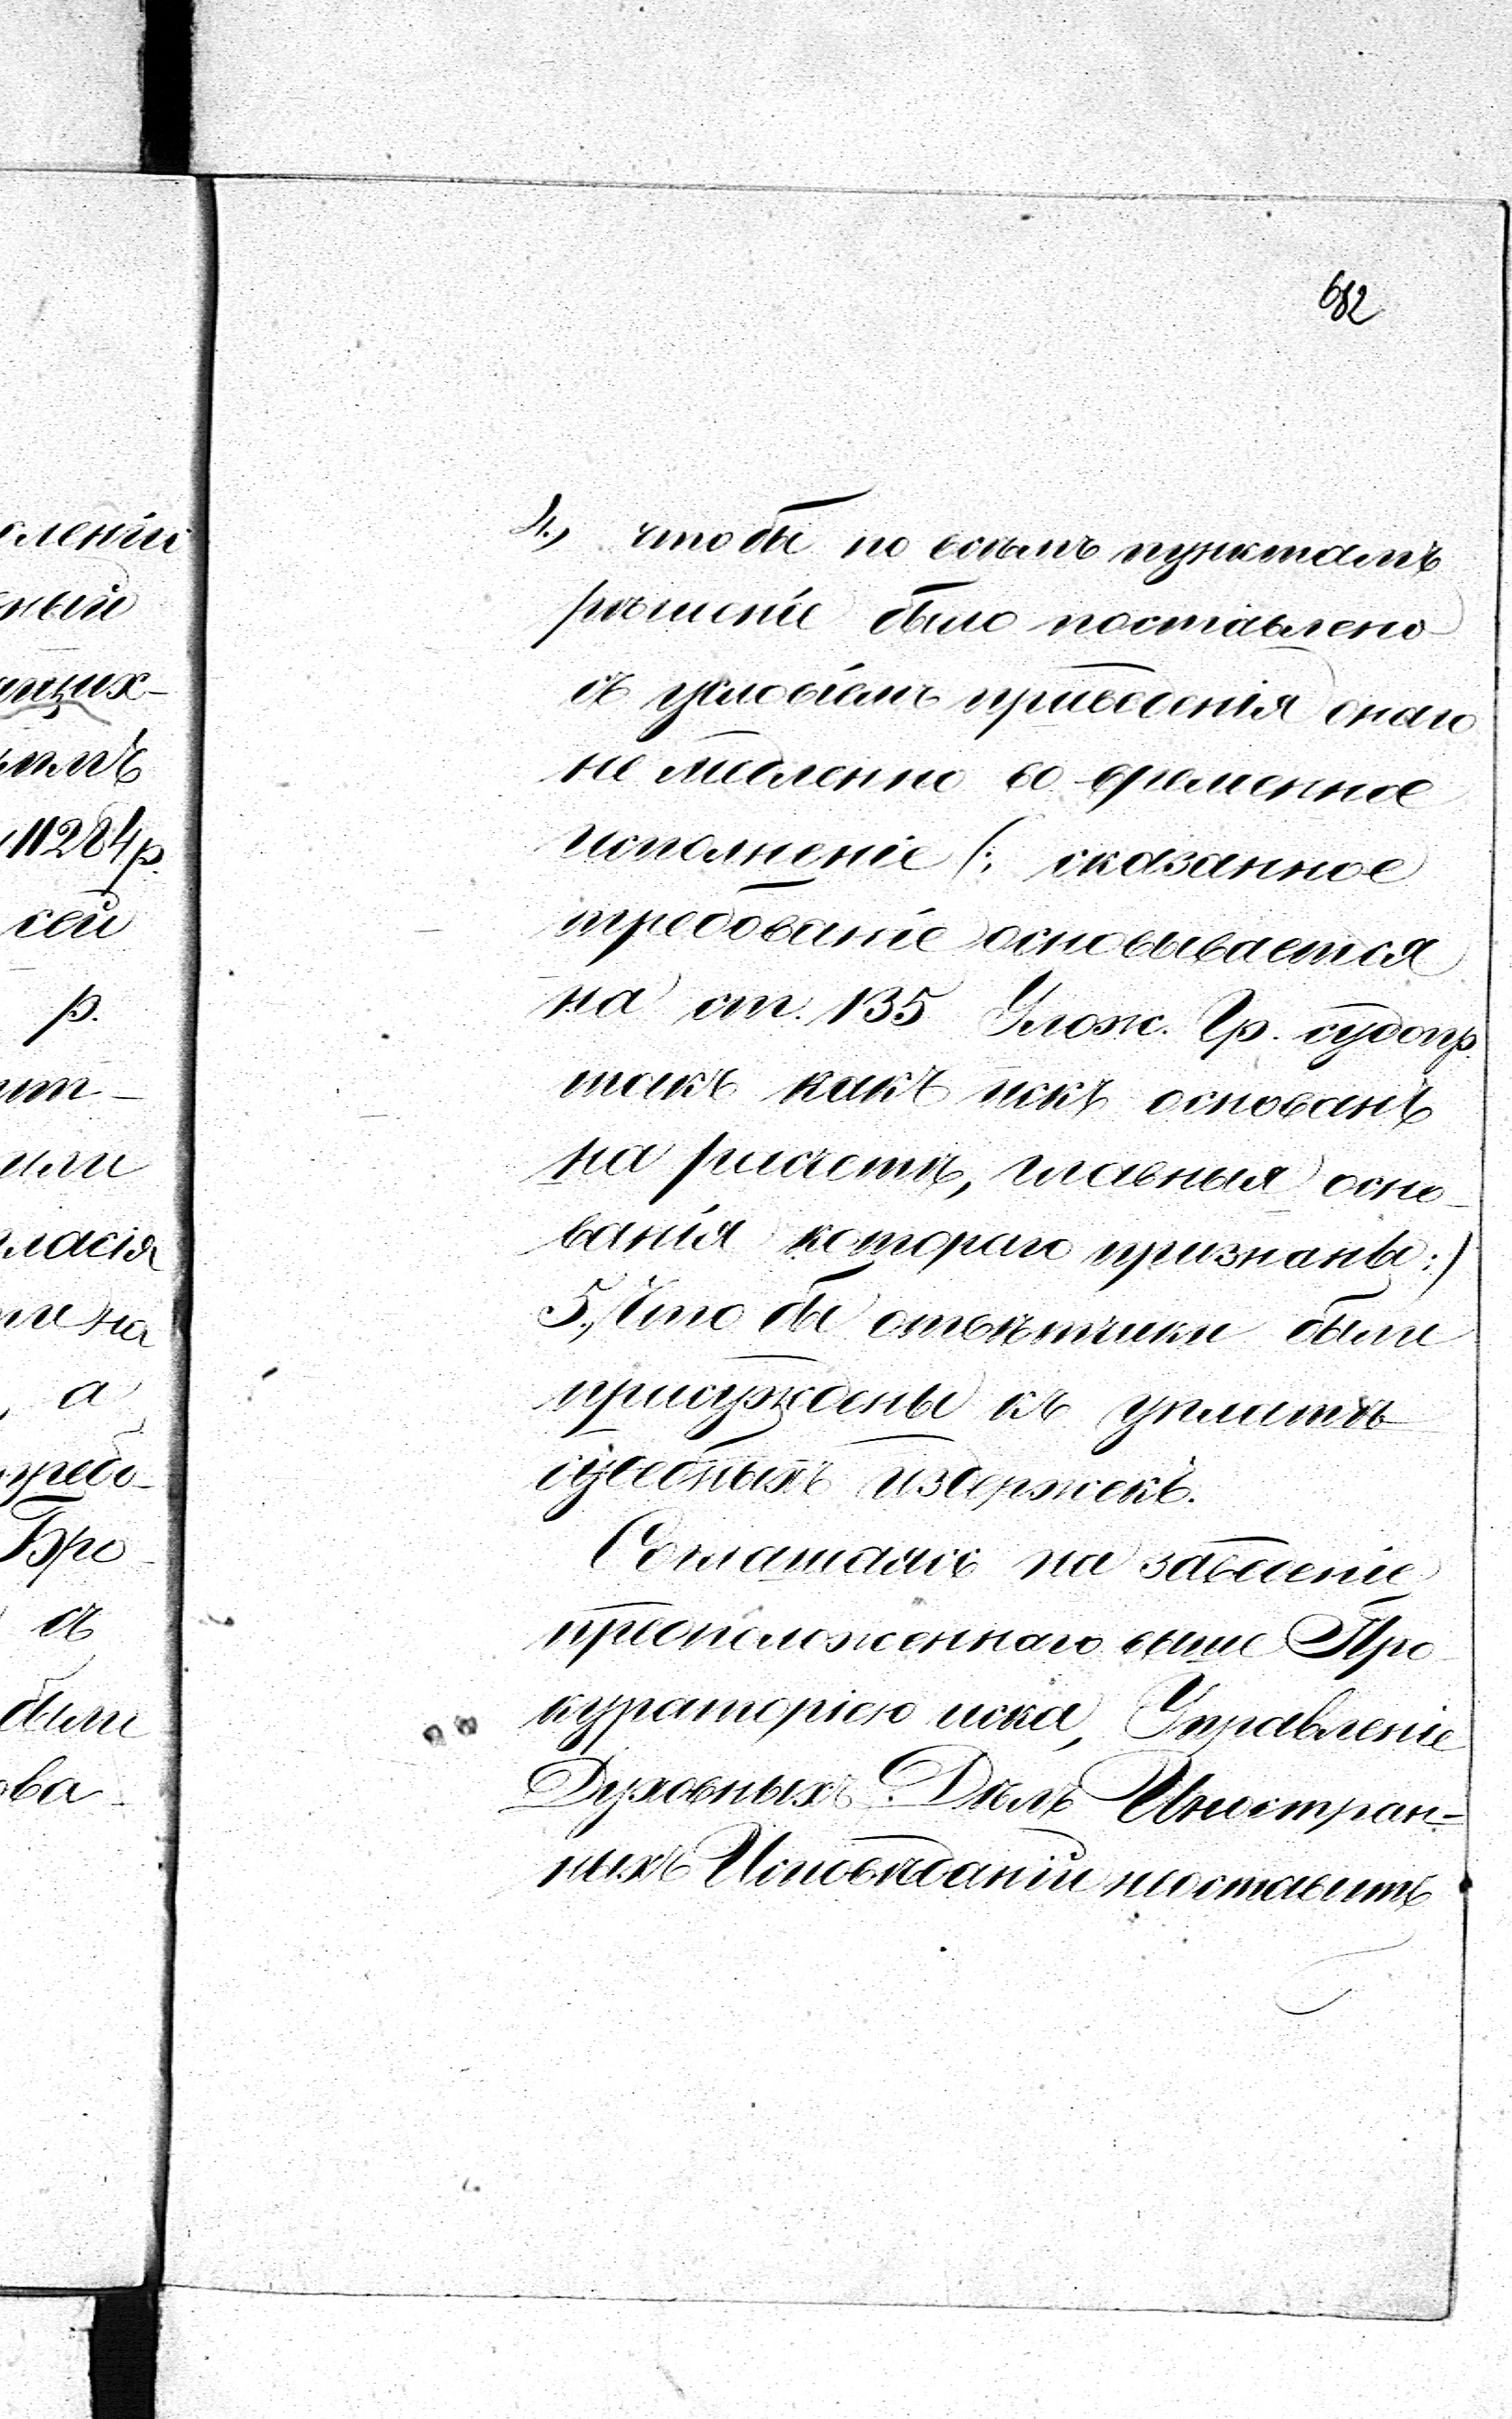 682
4., что бы по всѣмъ пунктамъ
рѣшеніе было поставлено
съ условіемъ приведенія онаго
не медленно во временное
исполненіе (: сказанное
требованіе основывается
на ст. 135 Улож. Гр. судопр.
такъ какъ искъ основанъ
на расчетѣ, главныя осно-
ванія котораго признаны :)
5., Что бы отвѣтчики были
присуждены къ уплатѣ
судебныхъ издержекъ.
Соглашаясь на заведеніе
предположеннаго выше Про-
кураторіею иска, Управленіе
Духовныхъ Дѣлъ Иностран=
ныхъ Исповѣданій
оленіи
ный
щих-
ымъ
11284 р.
сей
р.
ит-
или
гласія
на
, а
требо-
Бро-
съ
были
ова-